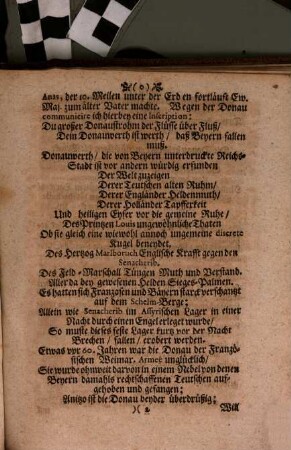 (o)
Anas, der 10. Meilen unter der Erden fortläufft Ew.
Maj. zum älter Vater machte. Wegen der Donau
communicire ich hierbey eine Inscription:
Du großer Donaustrohm der Flüsse über Fluß/
Dein Donauwerth ist werth / daß Beyern fallen
muß.
Donauwerth / die von Beyern unterdruckte Reichs-
Stadt ist vor andern würdig erfunden
Der Welt zuzeigen
Derer Teutschen alten Ruhm/
Derer Engländer Heldenmuth/
Derer Holländer Tapfferkeit
Und heiligen Eyfer vor die gemeine Ruhe/
Des Printzen Louis ungewöhnliche Thaten
Ob sie gleich eine wiewohl annoch ungemeine discrete
Kugel beneydet.
Des Hertzog Marlboruch Englische Krafft gegen den
Senacherib.
Des Feld-Marschall Tüngen Muth und Verstand.
Aller da bey gewesenen Helden Sieges-Palmen.
Es hatten sich Frantzosen und Bäyern starck verschantzt
auf dem Schelm-Berge;
Allein wie Senacherib im Assyrischen Lager in einer
Nacht durch einen Engel erleget wurde/
So muste dieses feste Lager kurtz vor der Nacht
Brechen / fallen / erobert werden.
Etwas vor 60. Jahren war die Donau der Frantzö-
sischen Weimar. Armeè unglücklich/
Sie wurde ohnweit darvon in einem Nebel von denen
Beyern damahls rechtschaffenen Teutschen auf-
gehoben und gefangen;
Anitzo ist die Donau beyder überdrüßig;
)( 2 Will